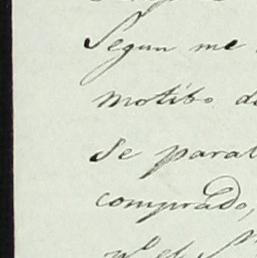 Segun me
motibo d
se paral
comprado,
pr. el S